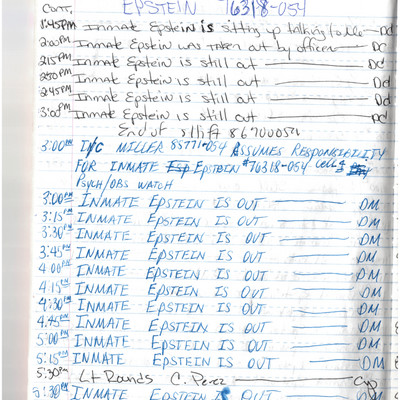 Cont. EPSTEIN 76318-054
1:45PM Inmate Epstein is sitting up talking to
2:00PM Inmate Epstein was taken out by officer — DC
2:15PM Inmate Epstein is still out — Dd
2:30PM Inmate Epstein is still out — Dd
2:45PM Inmate Epstein is still out — Dd
3:00PM Inmate Epstein is still out — Dd
End of shift
3:00PM I/C MILLER 85771-054 ASSUMES RESPONSIBILITY
FOR INMATE Esp EPSTEIN #76318-054 / CELL 4
PSYCH/OBS WATCH
3:00PM INMATE EPSTEIN IS OUT — DM
3:15PM INMATE EPSTEIN IS OUT — DM
3:30PM INMATE EPSTEIN IS OUT — DM
3:45PM INMATE EPSTEIN IS OUT — DM
4:00PM INMATE EPSTEIN IS OUT — DM
4:15PM INMATE EPSTEIN IS OUT — DM
4:30PM INMATE EPSTEIN IS OUT — DM
4:45PM INMATE EPSTEIN IS OUT — DM
5:00PM INMATE EPSTEIN IS OUT — DM
5:15PM INMATE EPSTEIN IS OUT — DM
5:30PM Lt Rounds C. Perez — 
5:30PM INMATE EPSTEIN IS OUT — DM